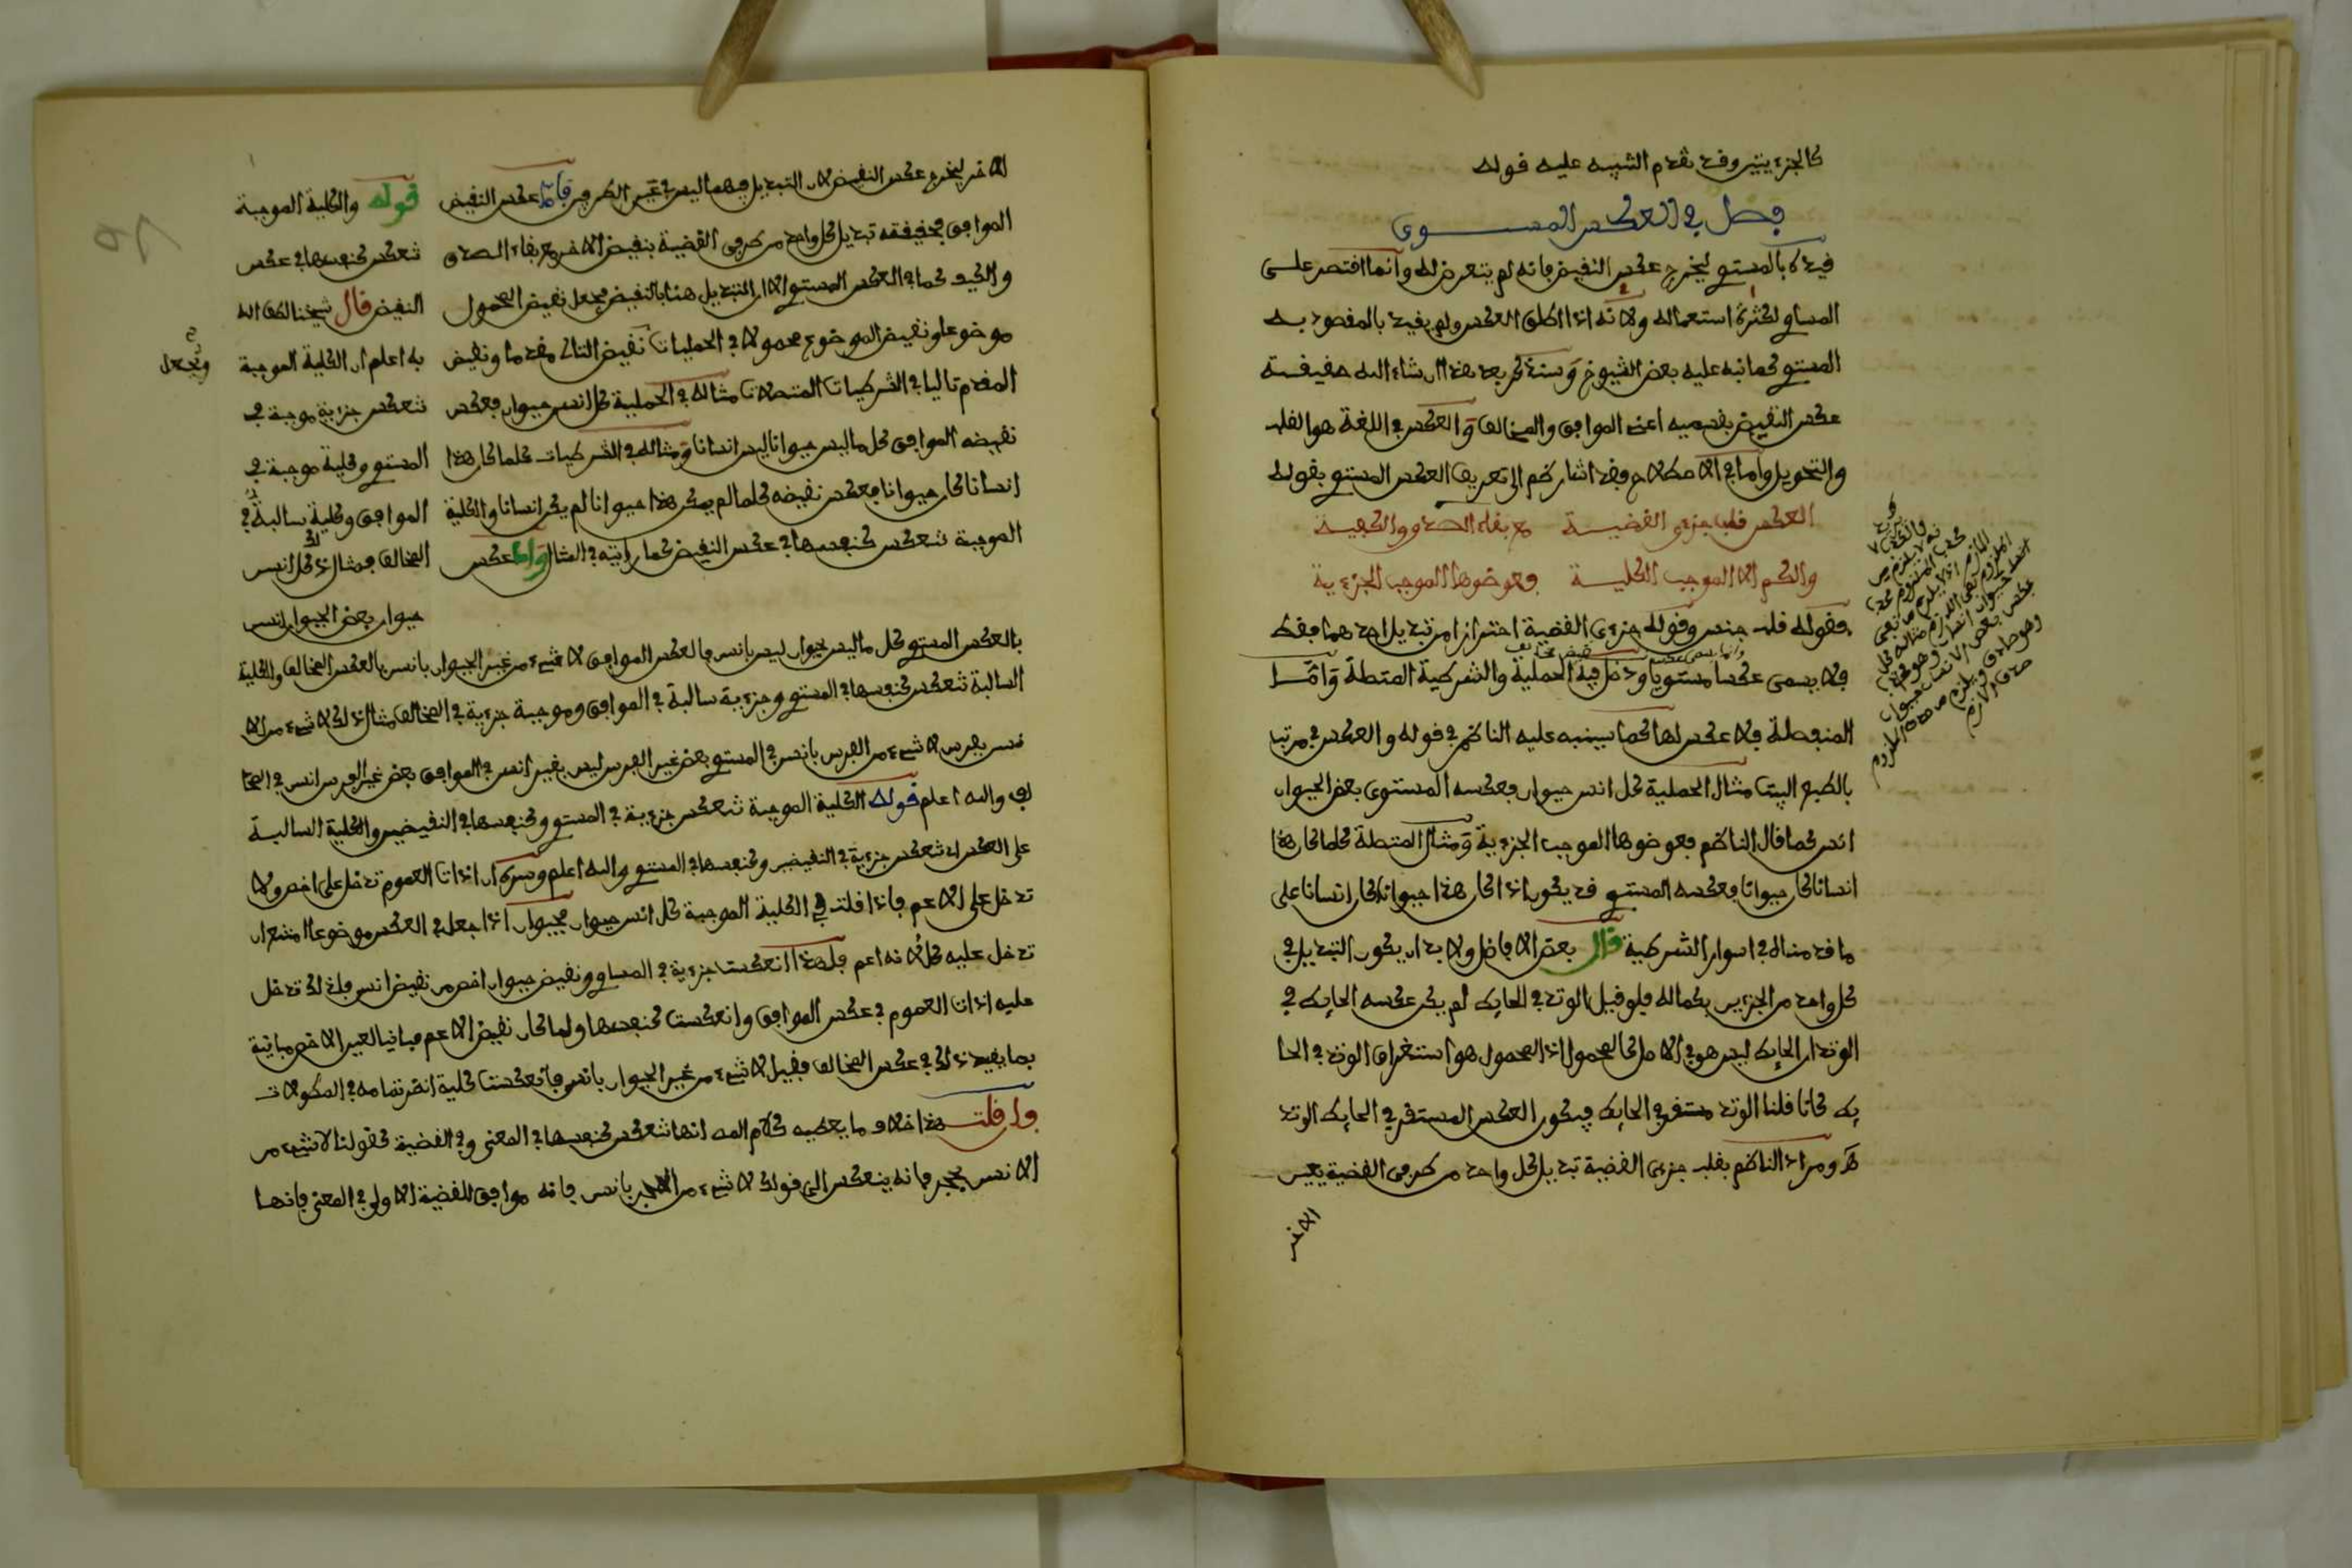 كالجزءيتين وقد تقدم التنبيه عليه قوله
فصل في العكس المستوى
قيده بالمستوي ليخرج عكس النقيض فإنه لم يتعرض له وإنما اقتصر على
المساو لكثرة استعماله ولأنه إذا أطلق العكس ولم يقيد بالمقصود به
المستوي كما نبه عليه بعض الشيوخ وستذكر بعد هذا إن شاء الله حقيقة
عكس النقيض بقسميه أعني الموافق والمخالف والعكس في اللغة هو القلب
والتحويل وأما في الاصطلاح فقد أشار ظم إلى تعريف العكس المستوي بقوله
العكس قلب جزءي القضية مع بقاء الصدق والكيفية
والكم إلا الموجب الكلية فعوضوها الموجب الجزءية
فقوله قلب جنس وقوله جزءي القضية احترازا من تبديل أحدهما فقط
فلا يسمى عكسا مستويا ودخل فيه الحملية والشرطية المتصلة وأما
المنفصلة فلا عكس لها كما سينبه عليه الناظم في قوله والعكس في مرتب
بالطبع البيت مثال الحملية كل انس حيوان فعكسه المستوى بعض الحيوان
انس كما قال الناظم فعوضوها الموجب الجزءية ومثال المتصلة كلما كان هذا
انسانا كان حيوانا فعكسه المستوي قد يكون اذا كان هذا حيوانا كان انسانا على
ما قدمناه في أسوار الشرطية قال بعض الافاضل ولا بد أن يكون التبديل في
كل واحد من الجزءين بكماله فلو قيل الوتد في الحايط لم يكن عكسه الحايط في
الوتد لأن الحايط ليس هو في الاصل كل المحمول اذ المحمول هو استغراق الوتد في الحا
يط كانا قلنا الوتد مستقر في الحايط فيكون العكس المستقر في الحايط الوتد
هـ ومراد الناظم بقلب جزءي القضية تبديل كل واحد من طرفي القضية بعين
الاخر
الاخر ليخرج عكس النقيض لأن التبديل فيهما ليس في عين الطرفين فإن عكس النقيض
الموافق حقيقته تبديل كل واحد من طرفي القضية بنقيض الاخر مع بقاء الصدق
والكيف كما في العكس المستوي الا ان التبديل هنا بالنقيض فيجعل نقيض المحمول
موضوعا ونقيض الموضوع محمولا في الحمليات نقيض التالي مقدما ونقيض
المقدم تاليا في الشرطيات المتصلات مثاله في الحملية كل انس حيوان فعكس
نقيضه الموافق كل ما ليس حيوانا ليس انسانا ومثاله في الشرطيات كلما كان هذا
انسانا كان حيوانا فعكس نقيضه كلما لم يكن هذا حيوانا لم يكن انسانا والكلية
الموجبة تنعكس كنفسها في عكس النقيض كما رأيته في المثال وأما عكس
قوله والكلية الموجبة
تنعكس كنفسها في عكس
النقيض قال شيخنا لطف الله
به اعلم ان الكلية الموجبة
تنعكس جزءية موجبة في
المستوي وكلية موجبة في
الموافق وكلية سالبة في
المخالف فمثال ذلك كل انس
حيوان بعض الحيوان انس
بالعكس المستوي كل ما ليس بحيوان ليس بانس بالعكس الموافق لا شيء من غير الحيوان بانس بالعكس المخالف والكلية
السالبة تنعكس كنفسها في المستوي وجزءية سالبة في الموافق وموجبة جزءية في المخالف مثال ذلك لا شيء من الا
نس بفرس لا شيء من الفرس بانس في المستوي بعض غير الفرس ليس بغير انس في الموافق بعض غير الفرس انس في المخا
لف والله اعلم قوله الكلية الموجبة تنعكس جزءية في المستوي وكنفسها في النقيضين والكلية السالبة
على العكس اي تنعكس جزءية في النقيضين وكنفسها في المستوي والله اعلم وسره ان اداة العموم تدخل على اخص ولا
تدخل على الاعم فاذا قلت في الكلية الموجبة كل انس حيوان فحيوان اذا جعل في العكس موضوعا امتنع ان
تدخل عليه كل لأنه اعم فلهذا انعكست جزءية في المساو ونقيض حيوان اخص من نقيض انس فلذلك تدخل
عليه اداة العموم في عكس الموافق وانعكست كنفسها ولما كان نقيض الاعم مباينا لعين الاخص مباينة
بما يفيد ذلك في عكس المخالف فقيل لا شيء من غير الحيوان بانس فانعكست كلية انظر تمامه في المطولات
وإن قلت هذا خلاف ما يعطيه كلام المص انها تنعكس كنفسها في المعنى وفي القضية كقولنا لا شيء من
الانس بحجر فإنه ينعكس الى قولك لا شيء من الحجر بانس فإنه موافق للقضية الاولى في المعنى فإنها